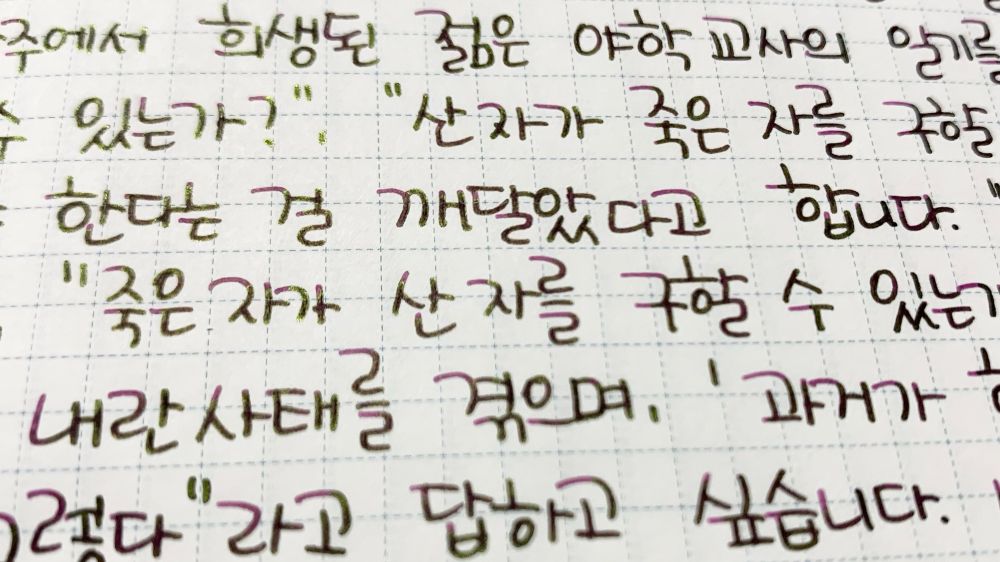 주에서 희생된 젊은 야학 교사의 일기를
수 있는가?" "산 자가 죽은 자를 구할
한다는 걸 깨달았다고 합니다."
"죽은 자가 산 자를 구할 수 있는가
내란사태를 겪으며, '과거가
그렇다"라고 답하고 싶습니다.